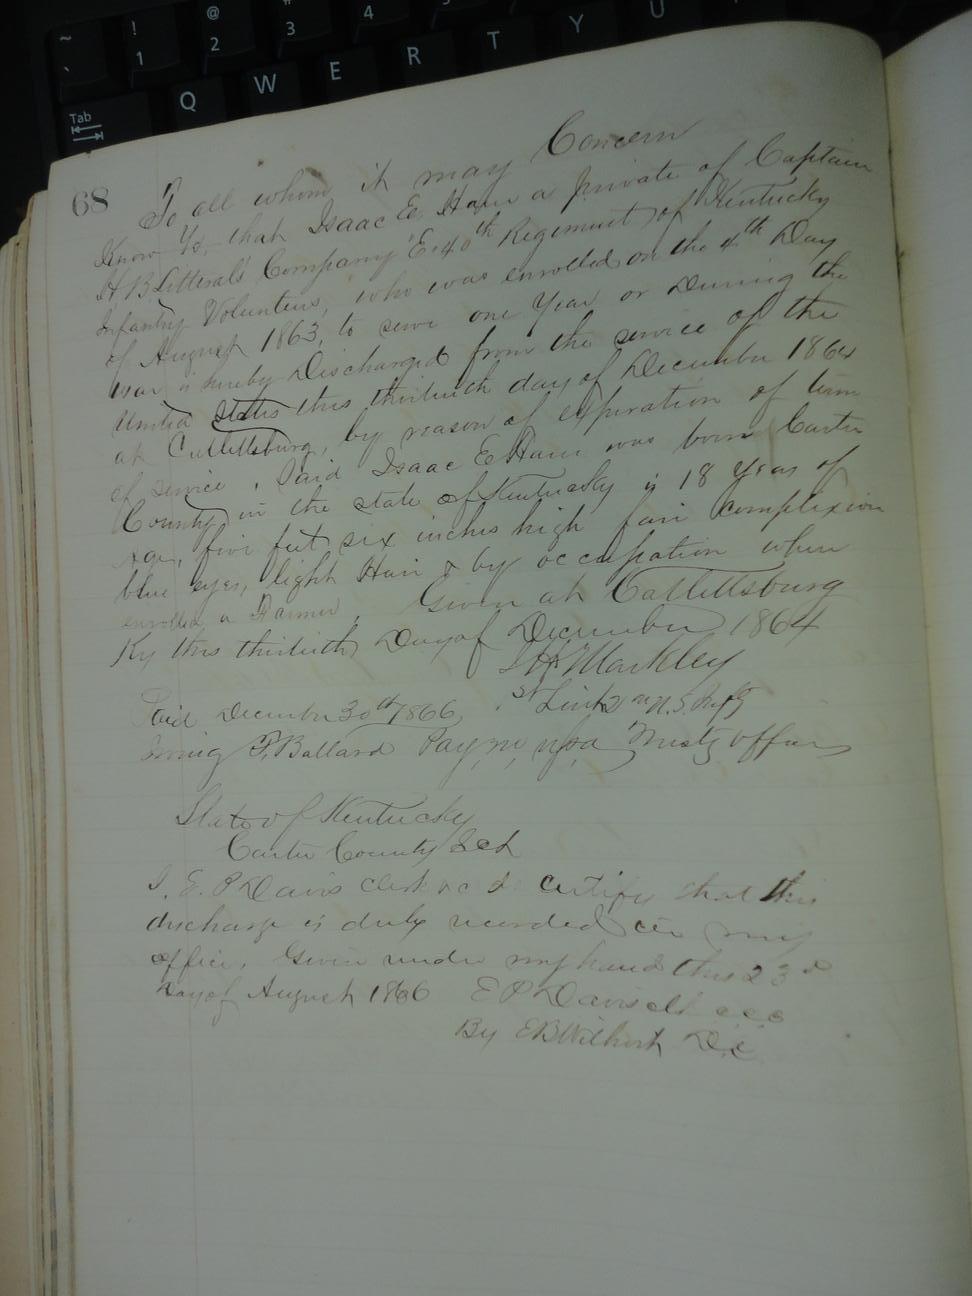 ~ ! @ # $
` 1 2 3 4
Tab Q W E R T Y U
68
To all whom it may Concern
Know Ye, that Isaac E. Ham a private of Captain
H B Litterals Company "E" 40th Regiment of Kentucky
Infantry Volunteers, who was enrolled on the 4th Day
of August 1863, to serve one Year or During the
war is hereby Discharged from the service of the
United states this thirtieth day of December 1864
at Catlettsburg, by reason of expiration of term
of service. Said Isaac E Ham was born Carter
County in the state of Kentucky is 18 Years of
age, five feet six inches high fair complexion
blue eyes, light Hair & by occupation when
enrolled a Farmer. Given at Catlettsburg
Ky this thirtieth Day of December 1864
Markley
1st Lieut
Paid December 30th 1866,
F, Ballard Paymr, USA Mustg officer
State of Kentucky
Carter County Sct
I. E. P Davis clerk &c do certify that this
discharge is duly recorded in my
office. Given under my hand this 23d
Day of August 1866 E P Davis clk ccc
By E B Wilhoit D.C.